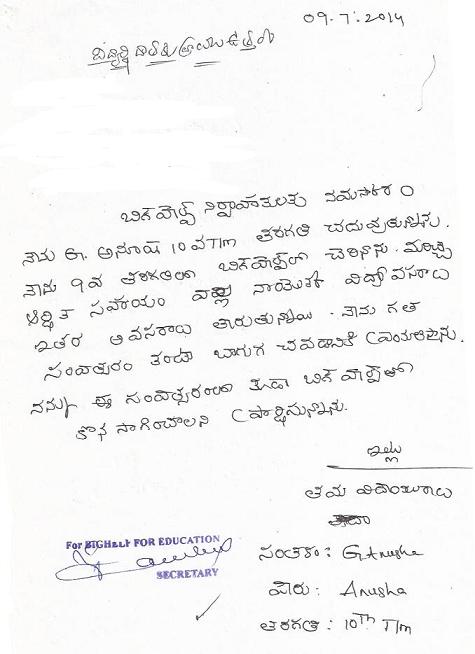 09.7.2014
విద్యార్థి దాతకు వ్రాయు ఉత్తరం
బిగ్‌హెల్ప్ నిర్వాహకులకు నమస్కారం
నేను G. అనూష 10వ T/m తరగతి చదువుతున్నాను.
నేను 9వ తరగతిలో బిగ్‌హెల్ప్‌లో చేరినాను.
ఆర్థిక సహాయం వల్ల నాయొక్క విద్యావసరాలు
ఇతర అవసరాలు తీరుతున్నాయి. నేను గత
సంవత్సరం బాగుగ చదవడానికి ప్రయత్నిస్తాను.
నన్ను ఈ సంవత్సరంలో కూడా బిగ్‌హెల్ప్‌లో
కొన సాగించాలని ప్రార్థిస్తున్నాను.
ఇట్లు
తమ విధేయురాలు
For BIGHELP FOR EDUCATION
SECRETARY
సంతకం: G Anusha
పేరు: Anusha
తరగతి: 10TH T/m